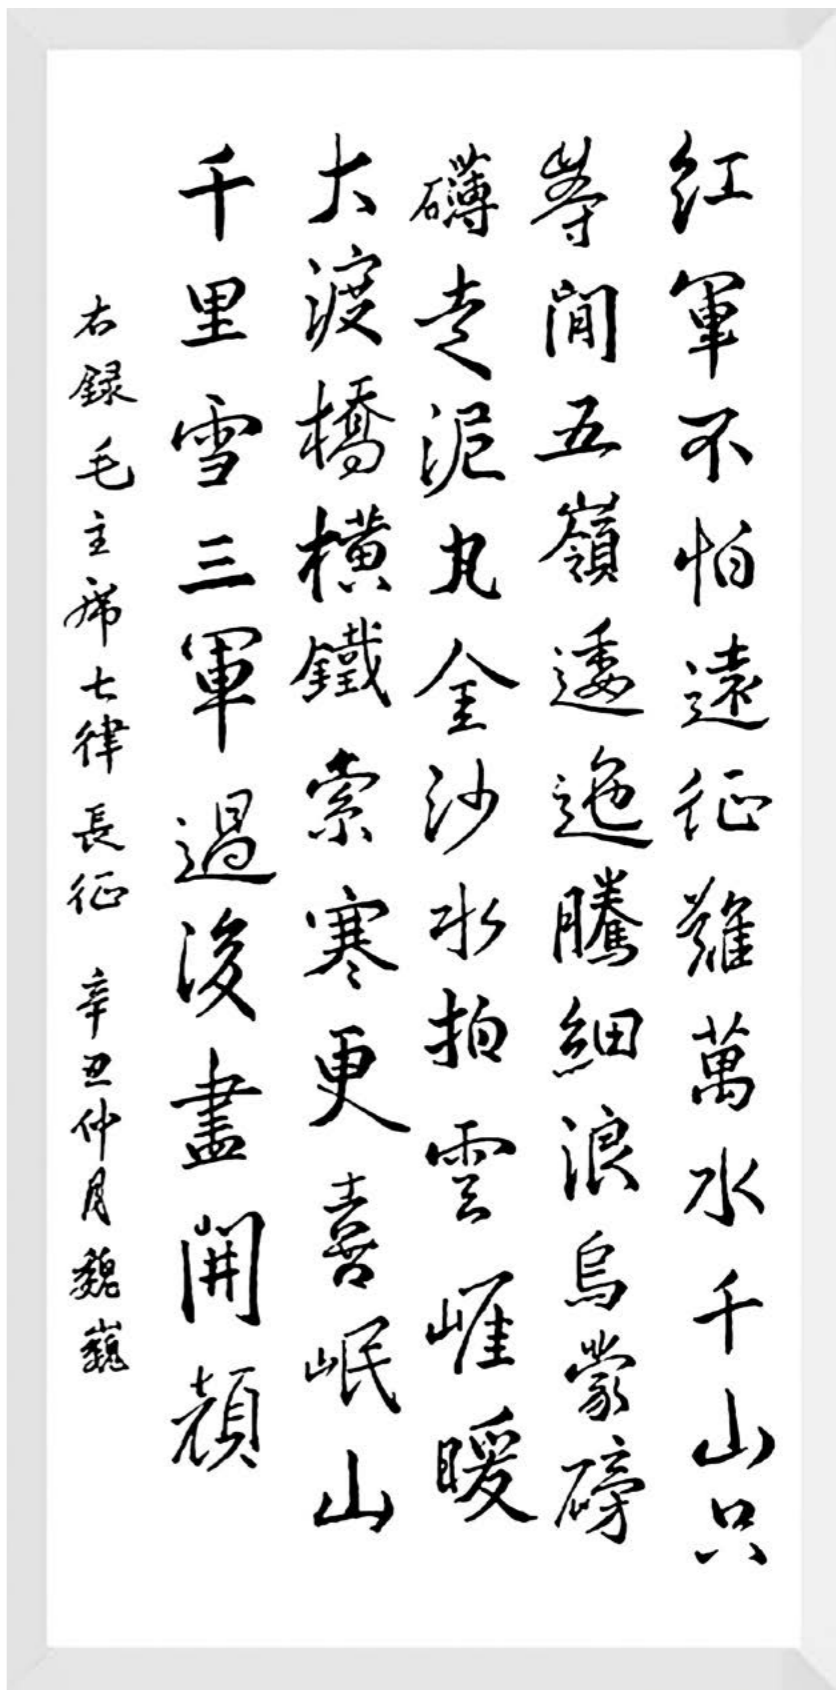 紅軍不怕遠征難萬水千山只
等閒五嶺逶迤騰細浪烏蒙磅
礴走泥丸金沙水拍雲崖暖
大渡橋橫鐵索寒更喜岷山
千里雪三軍過後盡開顔
右録毛主席七律長征 辛丑仲月魏巍